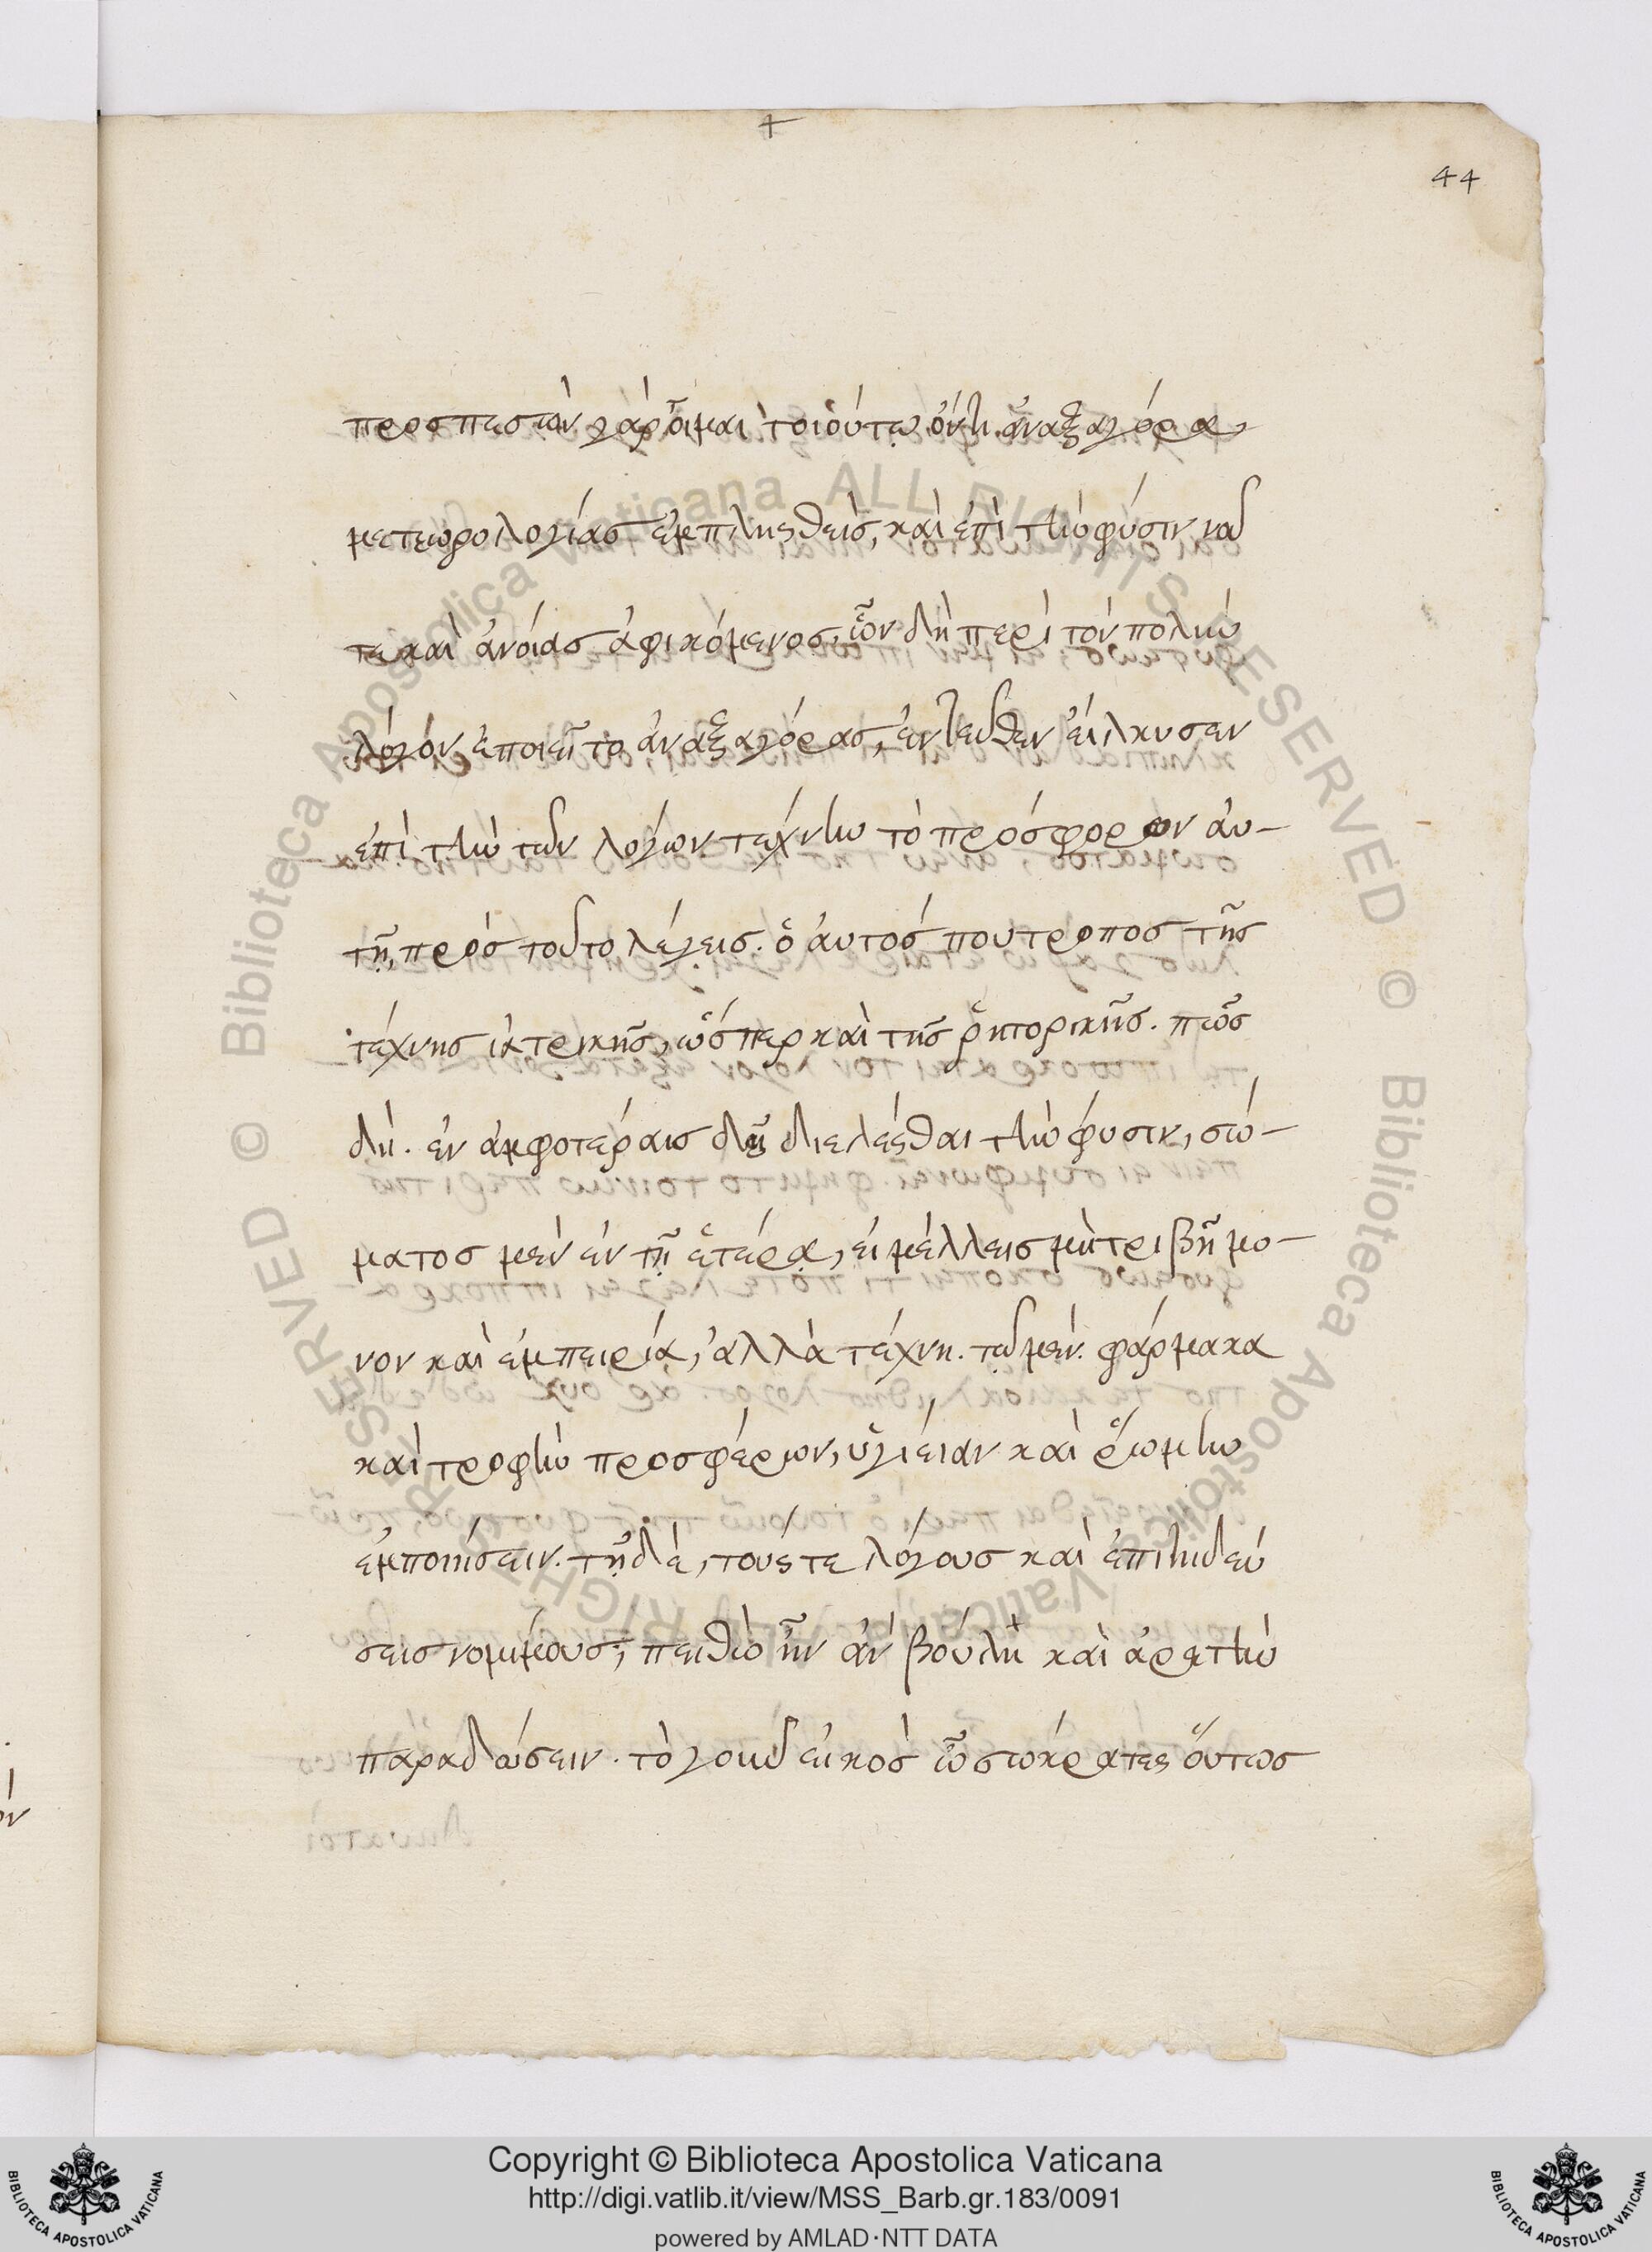 +
44
προσπεσὼν γὰρ οἶμαι τοιούτῳ ὄντι ἀναξαγόρᾳ,
μετεωρολογίας ἐμπλησθεὶς, καὶ ἐπὶ τὴν φύσιν νοῦ
τε καὶ ἀνοίας ἀφικόμενος, ὧν δὴ περὶ τὸν πολὺν
λόγον ἐποιεῖτο ἀναξαγόρας, ἐντεῦθεν εἵλκυσεν
ἐπὶ τὴν τῶν λόγων τέχνην τὸ πρόσφορον αὐ-
τῇ, πρὸς τοῦτο λέγεις. ὁ αὐτός που τρόπος τῆς
τέχνης ἰατρικῆς, ὥσπερ καὶ τῆς ῥητορικῆς. πῶς
δή. ἐν ἀμφοτέραις δεῖ διελέσθαι τὴν φύσιν, σώ-
ματος μὲν ἐν τῇ ἑτέρᾳ, εἰ μέλλεις μὴ τριβῇ μό-
νον καὶ ἐμπειρίᾳ, ἀλλὰ τέχνῃ. τῷ μὲν φάρμακα
καὶ τροφὴν προσφέρων, ὑγίειαν καὶ ῥώμην
ἐμποιήσειν. τῇ δὲ, τούς τε λόγους καὶ ἐπιτηδεύ
σεις νομίμους, πειθὼ ἣν ἂν βούλῃ καὶ ἀρετὴν
παραδώσειν. τὸ γοῦν εἰκὸς ὦ σώκρατες οὕτως
Copyright © Biblioteca Apostolica Vaticana
http://digi.vatlib.it/view/MSS_Barb.gr.183/0091
powered by AMLAD·NTT DATA
BIBLIOTECA APOSTOLICA VATICANA
BIBLIOTECA APOSTOLICA VATICANA
© Biblioteca Apostolica Vaticana ALL RIGHTS RESERVED © Biblioteca Apostolica Vaticana ALL RIGHTS RESERVED